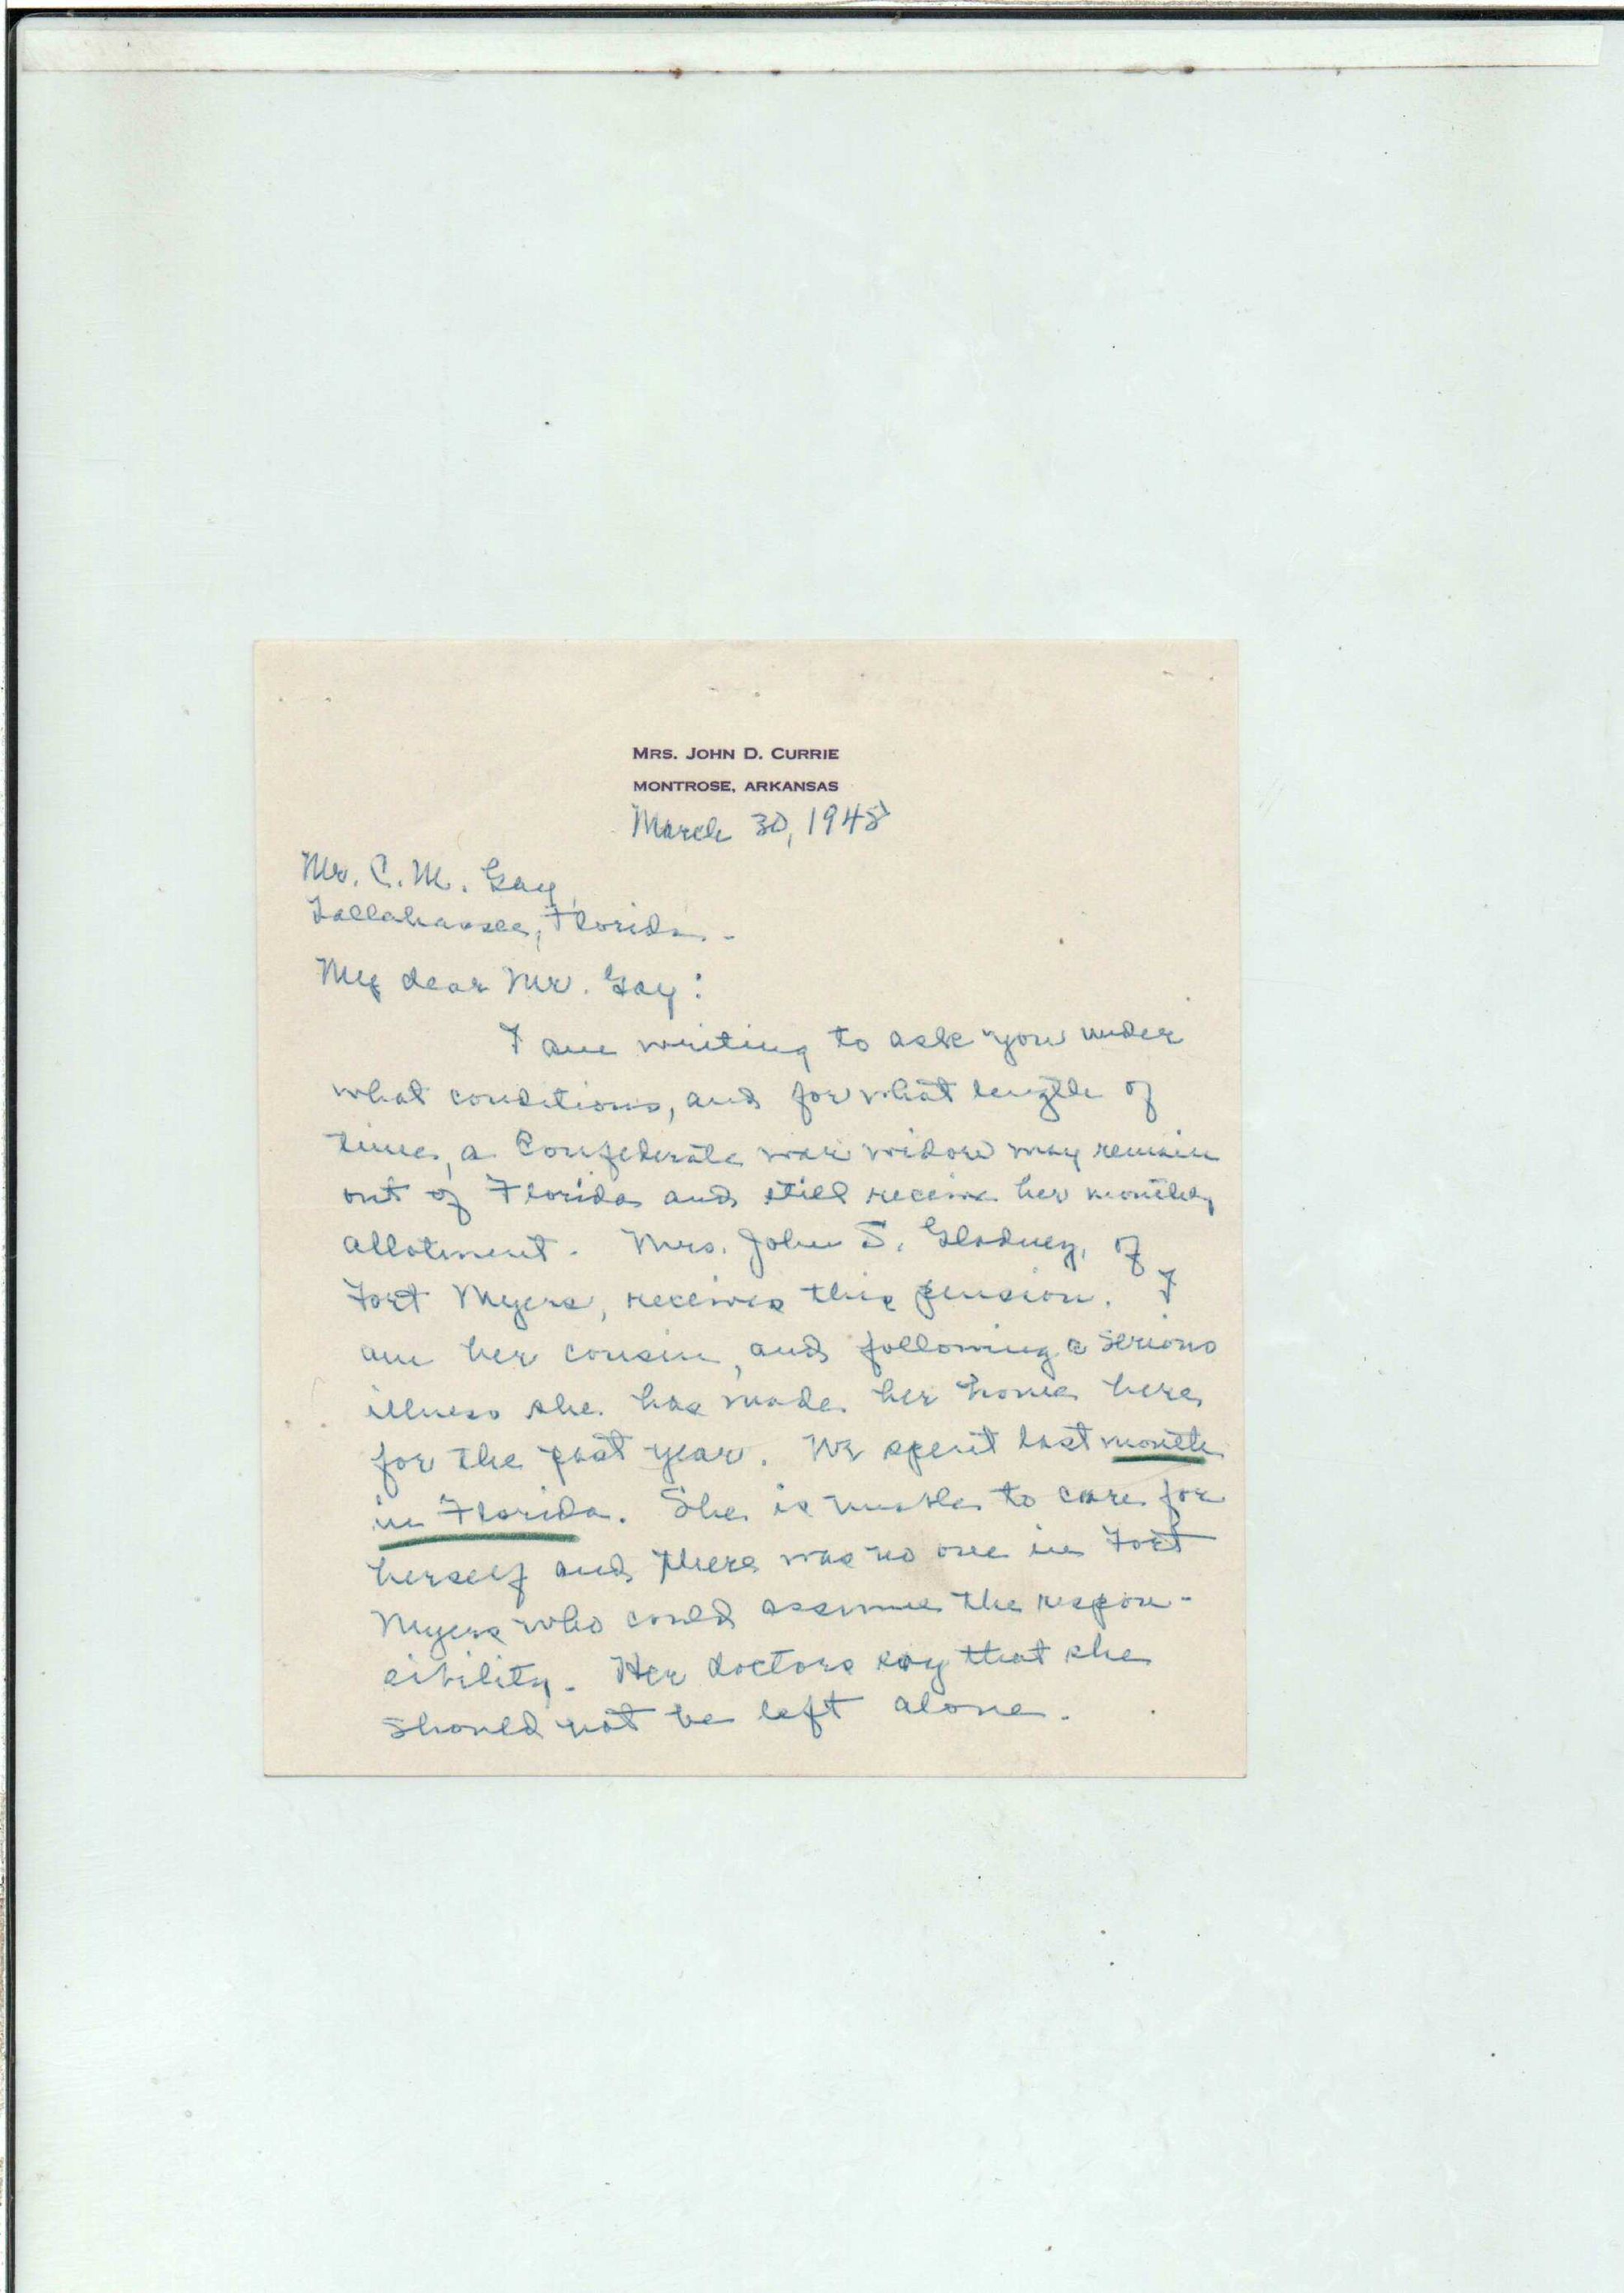 MRS. JOHN D. CURRIE
MONTROSE, ARKANSAS
March 30, 1948
Mr. C. M. Gay,
Tallahassee, Florida -
My dear Mr. Gay:
I am writing to ask you under
what conditions, and for what length of
time, a Confederate war widow may remain
out of Florida and still receive her monthly
allotment. Mrs. John S. Gladney, of
Fort Myers, receives this pension. I
am her cousin, and following a serious
illness she has made her home here
for the past year. We spent last month
in Florida. She is unable to care for
herself and there was no one in Fort
Myers who could assume the respon-
sibility. Her doctors say that she
should not be left alone.